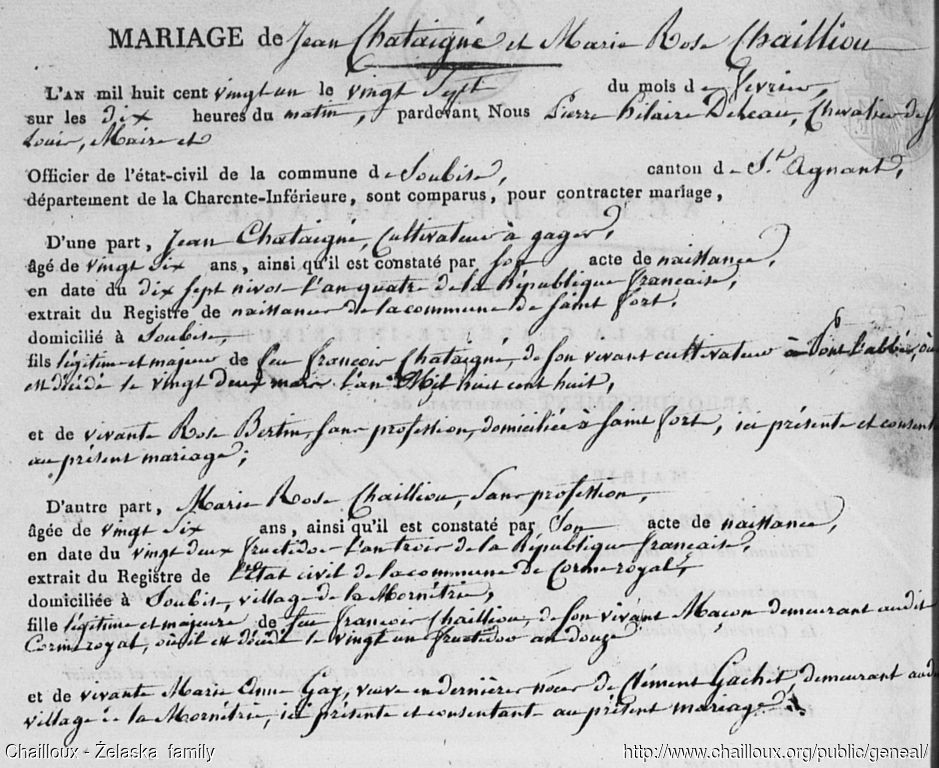 MARIAGE de Jean Chataigné et Marie Rose Chailliou
L'AN mil huit cent vingt un le vingt Sept du mois de fevrier,
sur les dix heures du matin, pardevant Nous Pierre hilaire Deleau, Chevalier de St
Louis, Maire et
Officier de l'état-civil de la commune de Soubise, canton de St. Agnant,
département de la Charente-Inférieure, sont comparus, pour contracter mariage,
D'une part, Jean Chataigné, Cultivateur à gages,
âgé de vingt Six ans, ainsi qu'il est constaté par Son acte de naissance,
en date du dix sept nivos l'an quatre de la République francaise,
extrait du Registre de naissances de la commune de Saint fort.
domicilié à Soubise,
fils légitime et majeur de feu francois Chataigné, de Son vivant cultivateur à Pont l'abbé, où
est décédé le vingt deux mars l'an Mil huit cent huit,
et de vivante Rose Bertin, Sans profession, domiciliée à Saint fort, ici présente et consent
au présent mariage;
D'autre part, Marie Rose Chailliou, Sans profession,
âgée de vingt Six ans, ainsi qu'il est constaté par Son acte de naissance,
en date du vingt deux fructidor l'an trois de la République française,
extrait du Registre de l'Etat civil de la commune de Corme royal,
domiciliée à Soubise, village de la Mornétrie,
fille légitime et majeure de feu francois Chailliou, de Son vivant Maçon demeurant audit
Corme royal, où il est décédé le vingt un fructidor an douze
et de vivante Marie Anne Gay, veuve en dernières noces de Clément Gachit demeurant audit
village de la Mornétrie, ici présente et consentant au présent mariage.
Chailloux - Żelaska family http://www.chailloux.org/public/geneal/